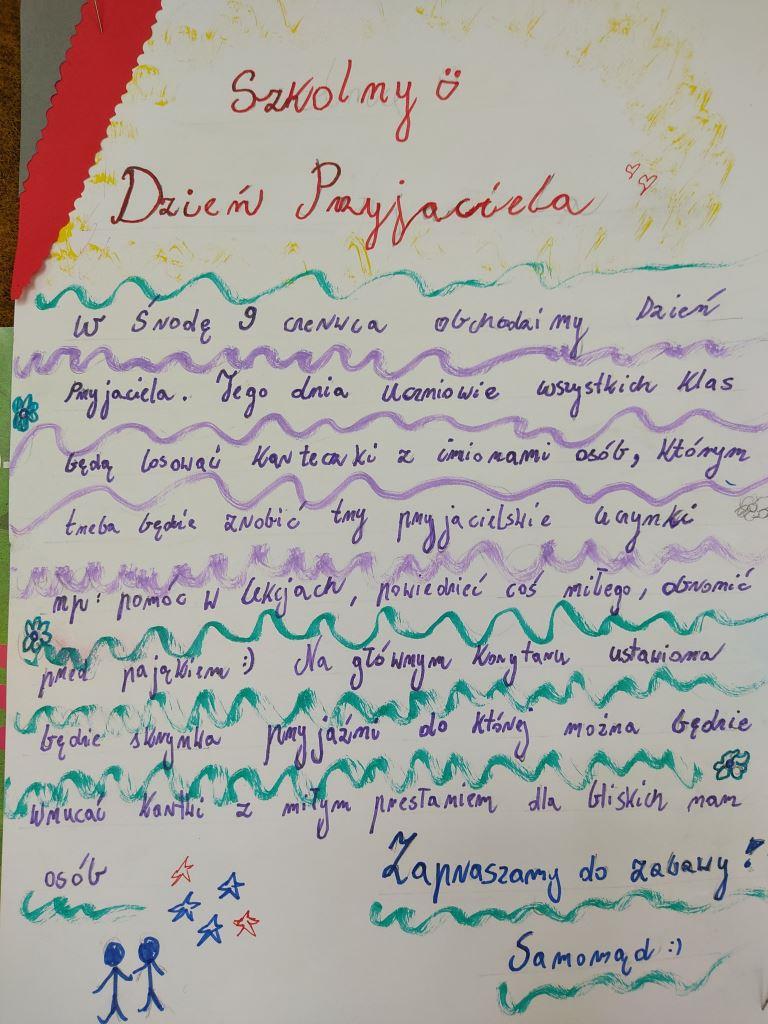 Szkolny
Dzień Przyjaciela
W Środę 9 czerwca obchodzimy Dzień
Przyjaciela. Tego dnia uczniowie wszystkich klas
będą losować karteczki z imionami osób, którym
trzeba będzie zrobić trzy przyjacielskie uczynki
np: pomóc w lekcjach, powiedzieć coś miłego, obronić
przed pająkiem :) Na głównym korytarzu ustawiona
będzie skrzynka przyjaźni do której można będzie
wrzucać kartki z miłym przesłaniem dla bliskich nam
osób
Zapraszamy do zabawy!
Samorząd :)